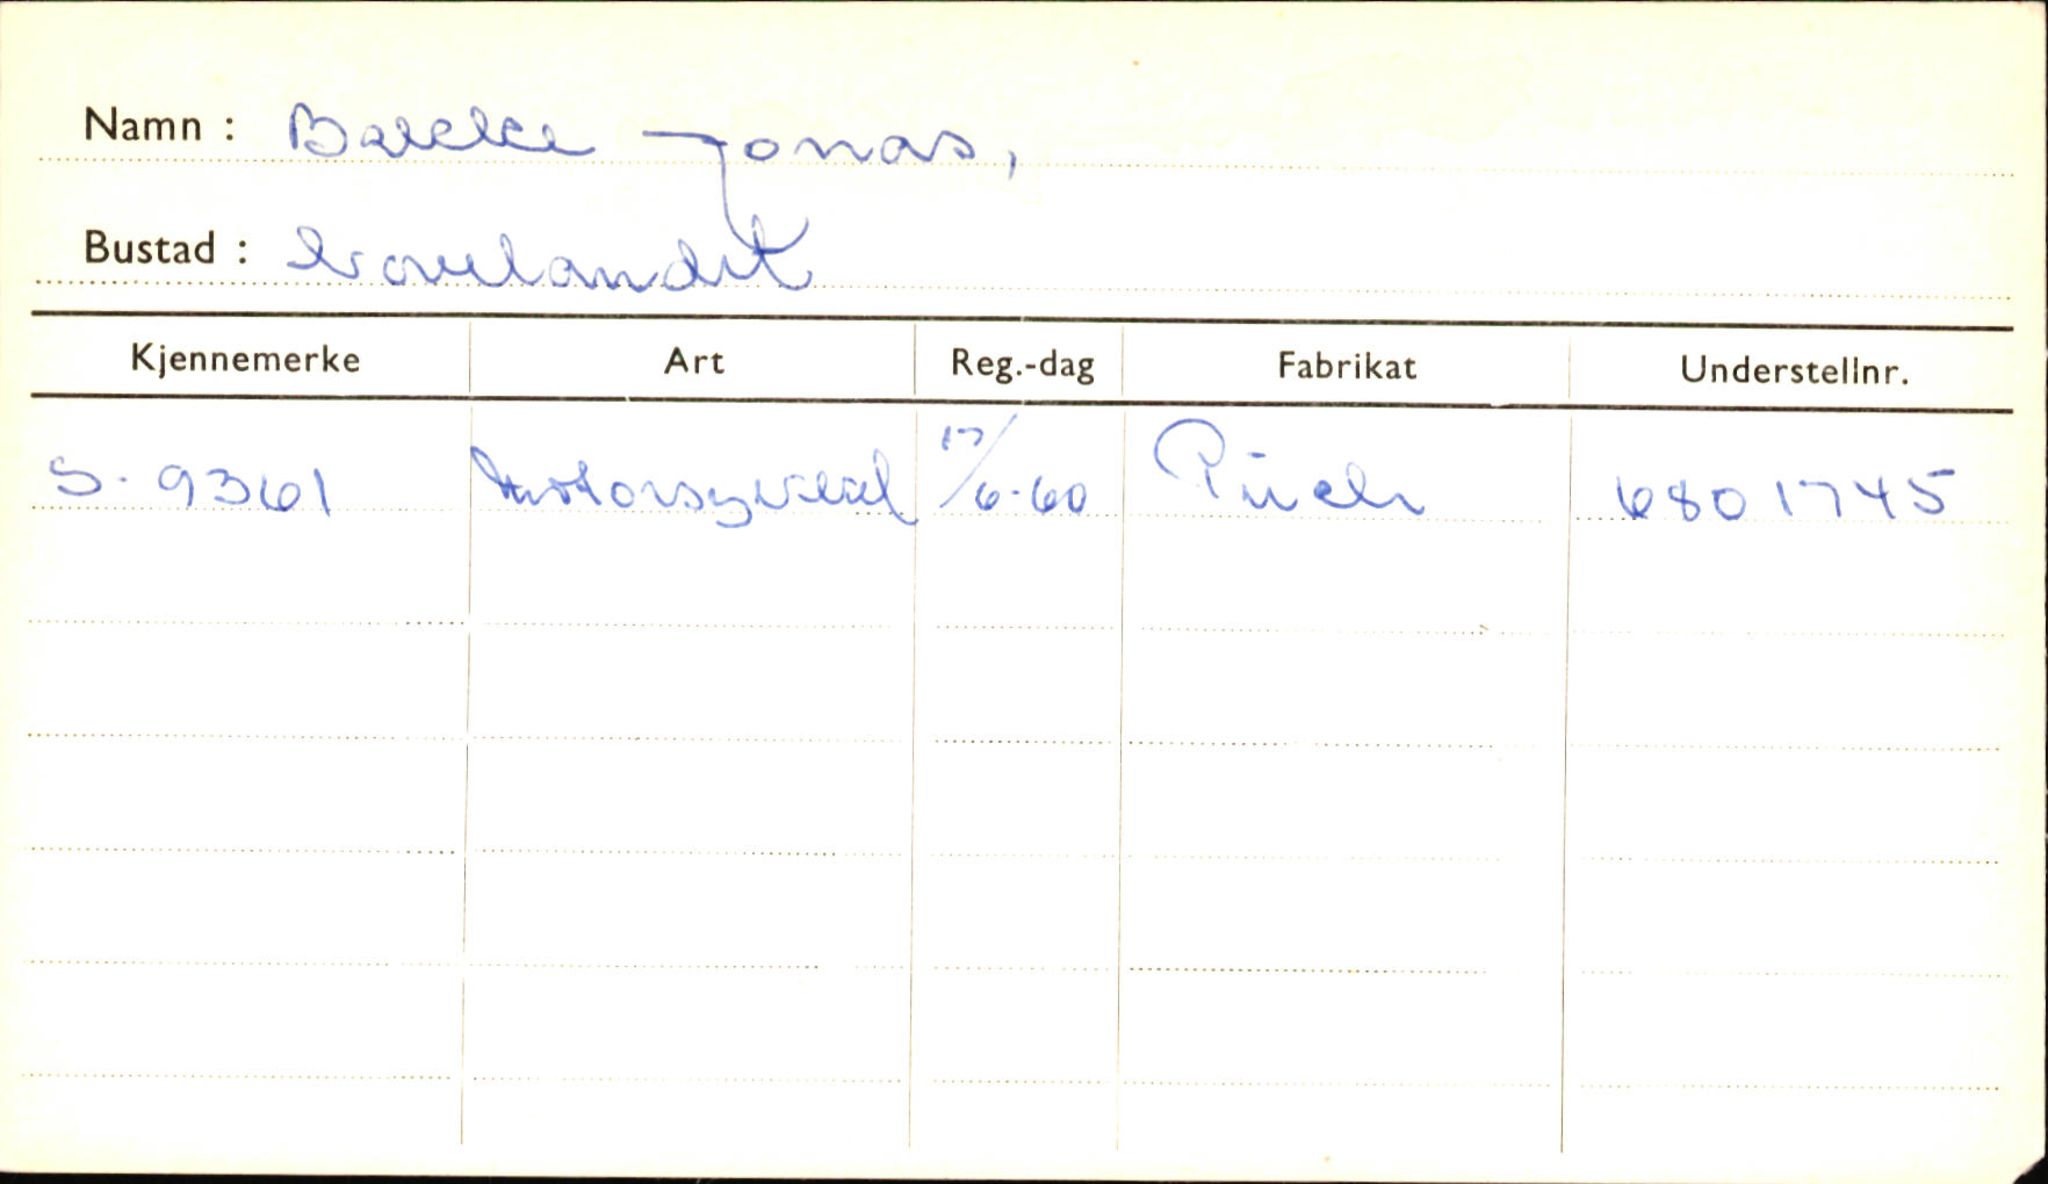 Namn : Bakke Jonas,
Bustad :
Kjennemerke Art Reg.-dag Fabrikat Understellnr.
S-9361 Motorsykkel 17/6-60 Püch 6801745